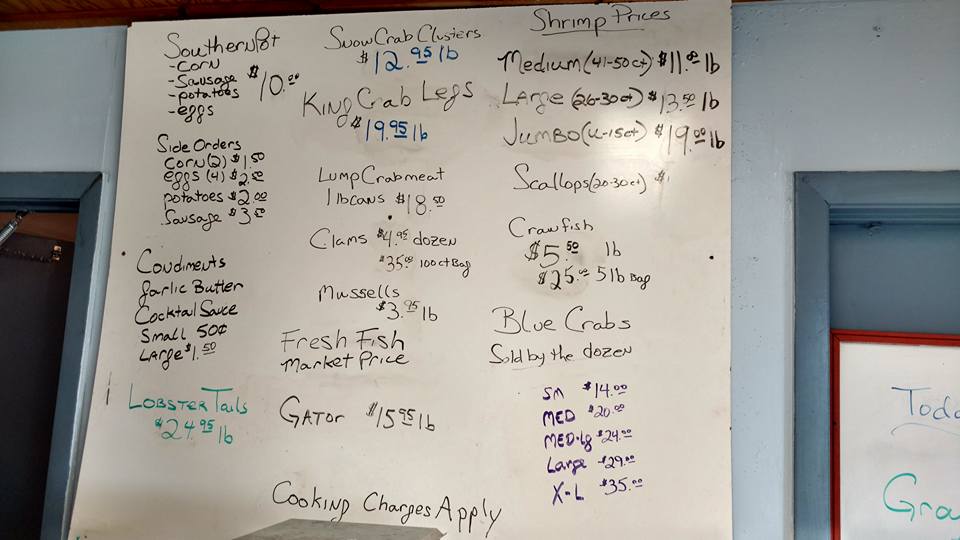 Southern Pot
-Corn
-Sausage
-potatoes
-eggs
$10.00
Side Orders
Corn(2) $1.50
eggs (4) $2.50
potatoes $2.00
Sausage $3.50
Condiments
Garlic Butter
Cocktail Sauce
Small 50¢
Large $1.50
Lobster Tails
$24.95 lb
Snow Crab Clusters
$12.95 lb
King Crab Legs
$19.95 lb
Lump Crabmeat
1 lb cans $18.50
Clams $4.95 dozen
$35.00 100ct Bag
Mussells
$3.95 lb
Fresh Fish
Market Price
Gator $15.95 lb
Cooking Charges Apply
Shrimp Prices
Medium (41-50ct) $11.00 lb
Large (26-30ct) $13.50 lb
Jumbo (U-15ct) $19.00 lb
Scallops (20-30ct) $
Crawfish
$5.50 lb
$25.00 5 lb Bag
Blue Crabs
Sold by the dozen
Sm $14.00
MED $20.00
MED-lg $24.00
Large $29.00
X-L $35.00